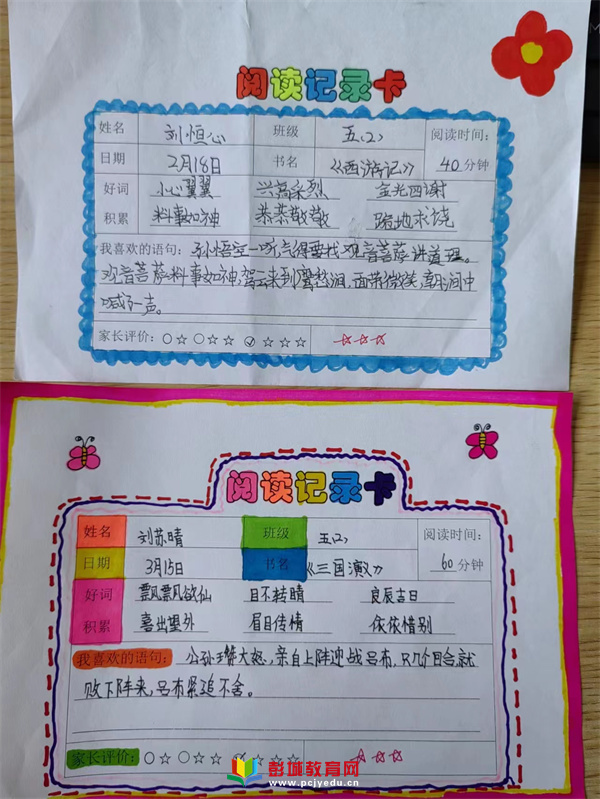 阅读记录卡
姓名 刘恒心 班级 五(2) 阅读时间:
日期 2月18日 书名 《西游记》 40分钟
好词 小心翼翼 兴高采烈 金光四谢
积累 料事如神 恭恭敬敬 跪地求饶
我喜欢的语句: 孙悟空一听气得要找观音菩萨讲道理。
观音菩萨料事如神,驾云来到鹰愁涧,面带微笑,朝涧中
喊了一声。
家长评价: ○☆ ○☆☆ ✓☆☆☆ ☆☆☆
阅读记录卡
姓名 刘苏晴 班级 五(2) 阅读时间:
日期 3月15日 书名 《三国演义》 60分钟
好词 飘飘欲仙 目不转睛 良辰吉日
积累 喜出望外 眉目传情 依依惜别
我喜欢的语句: 公孙瓒大怒,亲自上阵迎战吕布,只几个回合,就
败下阵来,吕布紧追不舍。
家长评价: ○☆ ○☆☆ ✓☆☆☆ ☆☆☆
彭城教育网
www.pcjyedu.cn